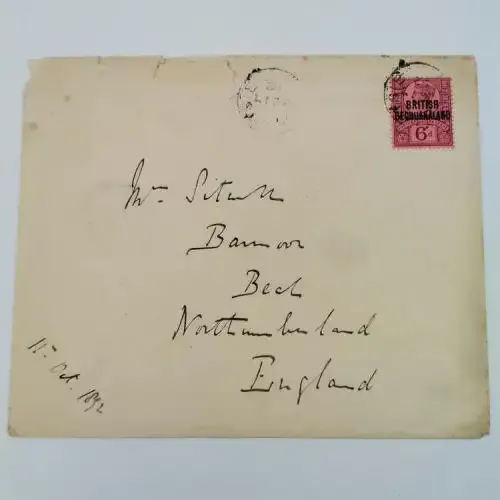 BRITISH
BECHUANALAND
6d
Mrs Sitwell
Barmoor
Beal
Northumberland
England
11th Oct. 1892